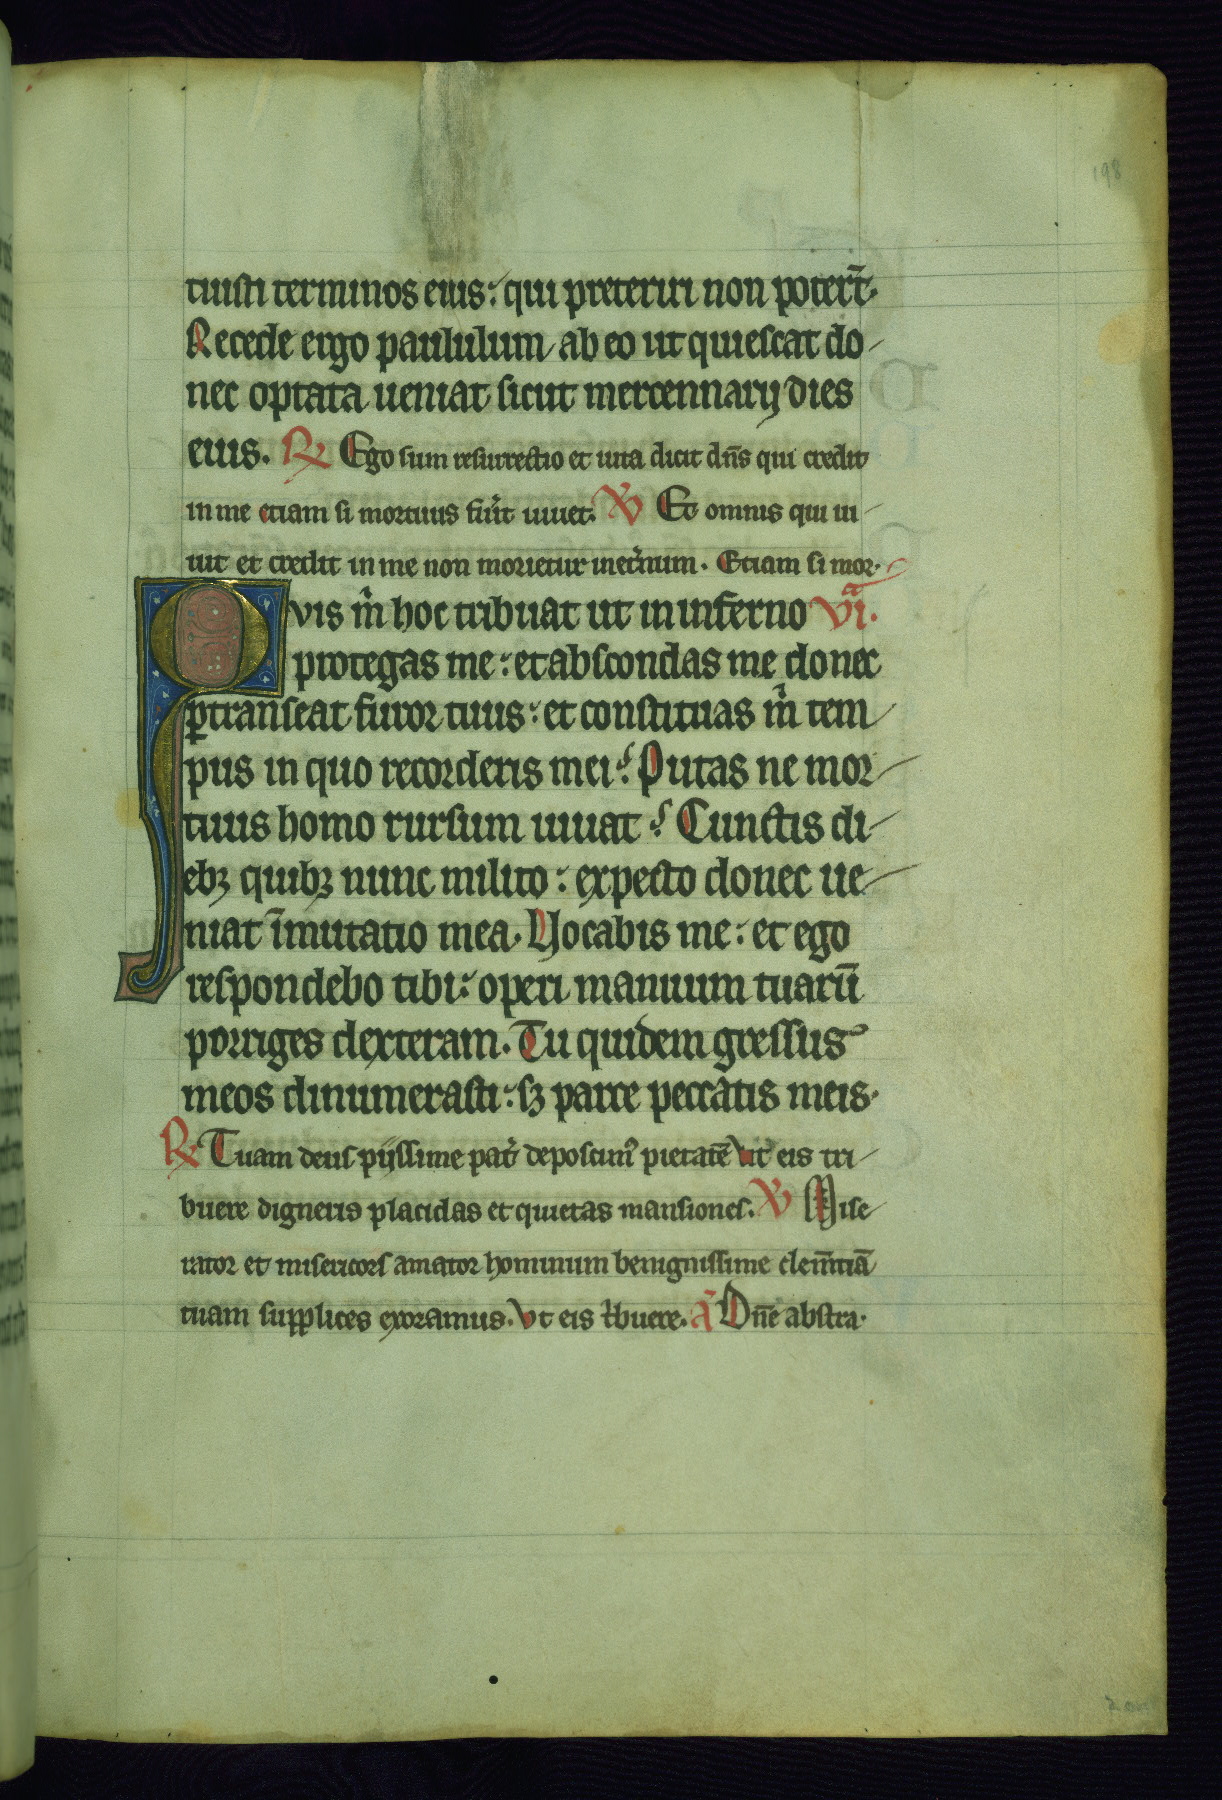 198
tuisti terminos eius: qui preteriri non potert̃.
Recede ergo paululum ab eo ut quiescat do-
nec optata ueniat sicut mercennarij dies
eius. ℟ Ego sum resurrectio et uita dicit dñs qui credit
in me etiam si mortuus fu᷑it uiuet. ℣ Et omnis qui ui-
uit et credit in me non morietur inet᷑num. Etiam si mor.
Qvis m̃ hoc tribuat ut in inferno viͣ.
protegas me: et abscondas me donec
ꝑtranseat furor tuus: et constituas m̃ tem-
pus in quo recorderis mei? Putas ne mor-
tuus homo rursum uiuat? Cunctis di-
ebꝫ quibꝫ nunc milito: expecto donec ue-
niat ĩmutatio mea. Vocabis me: et ego
respondebo tibi: operi manuum tuarũ
porriges dexteram. Tu quidem gressus
meos dinumerasti: sꝫ parce peccatis meis.
℟ Tuam deus pijssime pat᷑ deposcim᷒ pietatẽ ut eis tri-
buere digneris placidas et quietas mansiones. ℣ Mise-
rator et misericors amator hominum benignissime clem̃tiã
tuam supplices exoramus. Vt eis t̾buere. ã Dñe abstra.